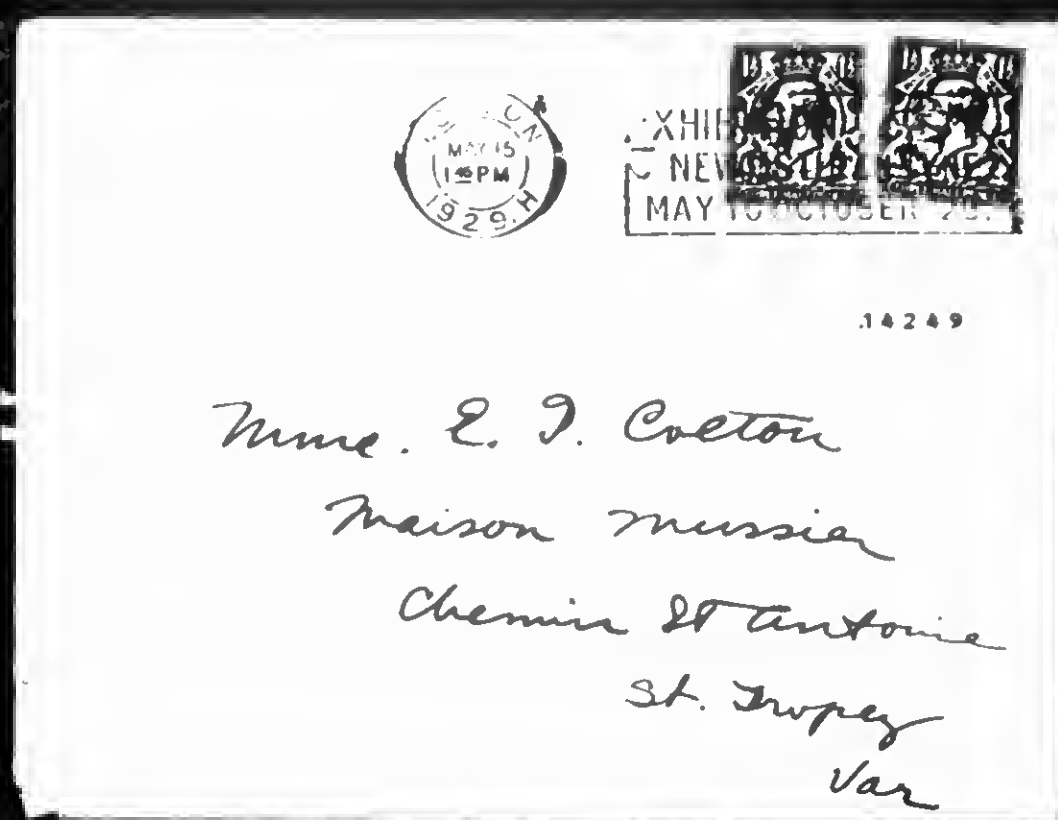 MAY 15
1 45 PM
1929. H
NEW
MAY TO OCTOBER
14249
Mme. E. I. Colton
Maison Mussier
Chemin St Antoine
St. Tropez
Var